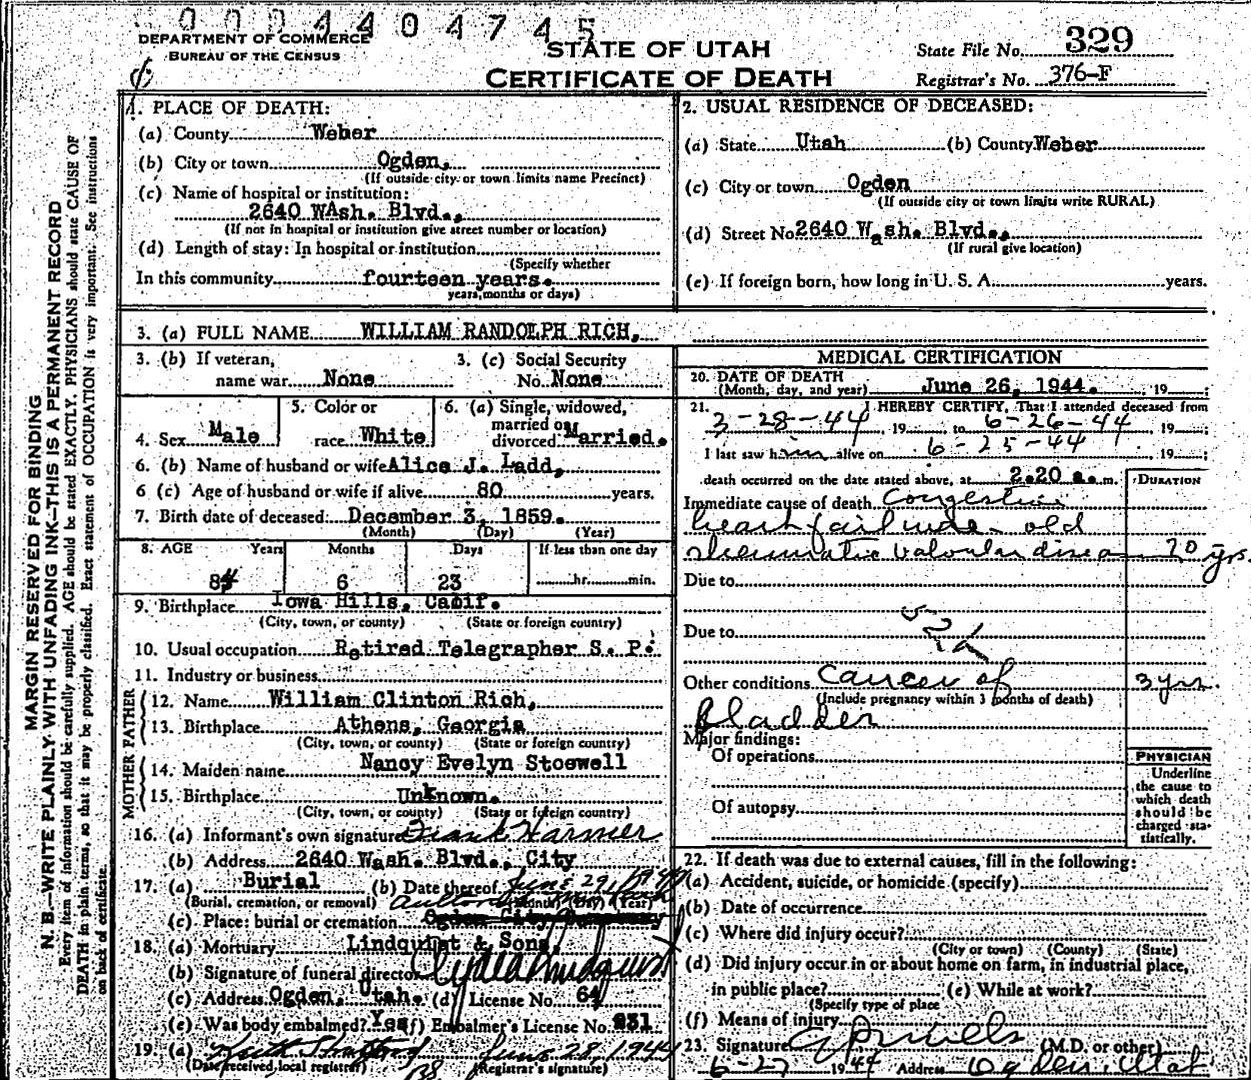 0004404745
DEPARTMENT OF COMMERCE
BUREAU OF THE CENSUS
STATE OF UTAH
CERTIFICATE OF DEATH
State File No. 329
Registrar's No. 376-F
MARGIN RESERVED FOR BINDING
N. B.—WRITE PLAINLY WITH UNFADING INK—THIS IS A PERMANENT RECORD
Every item of information should be carefully supplied. AGE should be stated EXACTLY. PHYSICIANS should state CAUSE OF
DEATH in plain terms, so that it may be properly classified. Exact statement of OCCUPATION is very important. See instructions
on back of certificate.
1. PLACE OF DEATH:
(a) County Weber
(b) City or town Ogden,
(If outside city or town limits name Precinct)
(c) Name of hospital or institution:
2640 WAsh. Blvd.,
(If not in hospital or institution give street number or location)
(d) Length of stay: In hospital or institution
(Specify whether
In this community fourteen years.
years, months or days)
2. USUAL RESIDENCE OF DECEASED:
(a) State Utah (b) County Weber
(c) City or town Ogden
(If outside city or town limits write RURAL)
(d) Street No 2640 Wash. Blvd.,
(If rural give location)
(e) If foreign born, how long in U. S. A. years.
3. (a) FULL NAME WILLIAM RANDOLPH RICH,
3. (b) If veteran, 3. (c) Social Security
name war None No. None
5. Color or 6. (a) Single, widowed,
married or
4. Sex Male race White divorced Married.
6. (b) Name of husband or wife Alice J. Ladd,
6 (c) Age of husband or wife if alive 80 years.
7. Birth date of deceased: December 3, 1859.
(Month) (Day) (Year)
8. AGE Years Months Days If less than one day
84 6 23 hr. min.
9. Birthplace Iowa Hills, Calif.
(City, town, or county) (State or foreign country)
10. Usual occupation Retired Telegrapher S. P.
11. Industry or business
FATHER
12. Name William Clinton Rich,
13. Birthplace Athens, Georgia
(City, town, or county) (State or foreign country)
MOTHER
14. Maiden name Nancy Evelyn Stoewell
15. Birthplace Unknown.
(City, town, or county) (State or foreign country)
16. (a) Informant's own signature Frank Harmer
(b) Address 2640 Wash. Blvd., City
17. (a) Burial (b) Date thereof June 29, 1944
(Burial, cremation, or removal) (Month) (Day) (Year)
(c) Place: burial or cremation Ogden City Cemetery
18. (a) Mortuary Lindquist & Sons,
(b) Signature of funeral director Clyde Lindquist
(c) Address Ogden, Utah. (d) License No. 64
(e) Was body embalmed? Yes (f) Embalmer's License No. 231
19. (a) June 28, 1944
(Date received local registrar) (Registrar's signature)
MEDICAL CERTIFICATION
20. DATE OF DEATH
(Month, day, and year) June 26, 1944. , 19 ;
21. I HEREBY CERTIFY, That I attended deceased from
3-28-44, 19 to 6-26-44, 19 ;
I last saw him alive on 6-25-44, 19 ;
death occurred on the date stated above, at 2.20 a. m.
DURATION
Immediate cause of death Congestive
heart failure - old
rheumatic valvular disease 70 yrs.
Due to
Due to
52
Other conditions Cancer of 3 yrs.
(Include pregnancy within 3 months of death)
Bladder
Major findings:
Of operations
Of autopsy
PHYSICIAN
Underline
the cause to
which death
should be
charged sta-
tistically.
22. If death was due to external causes, fill in the following:
(a) Accident, suicide, or homicide (specify)
(b) Date of occurrence
(c) Where did injury occur?
(City or town) (County) (State)
(d) Did injury occur in or about home on farm, in industrial place,
in public place? (e) While at work?
(Specify type of place
(f) Means of injury
23. Signature (M.D. or other)
6-27 1944 Address Ogden, Utah